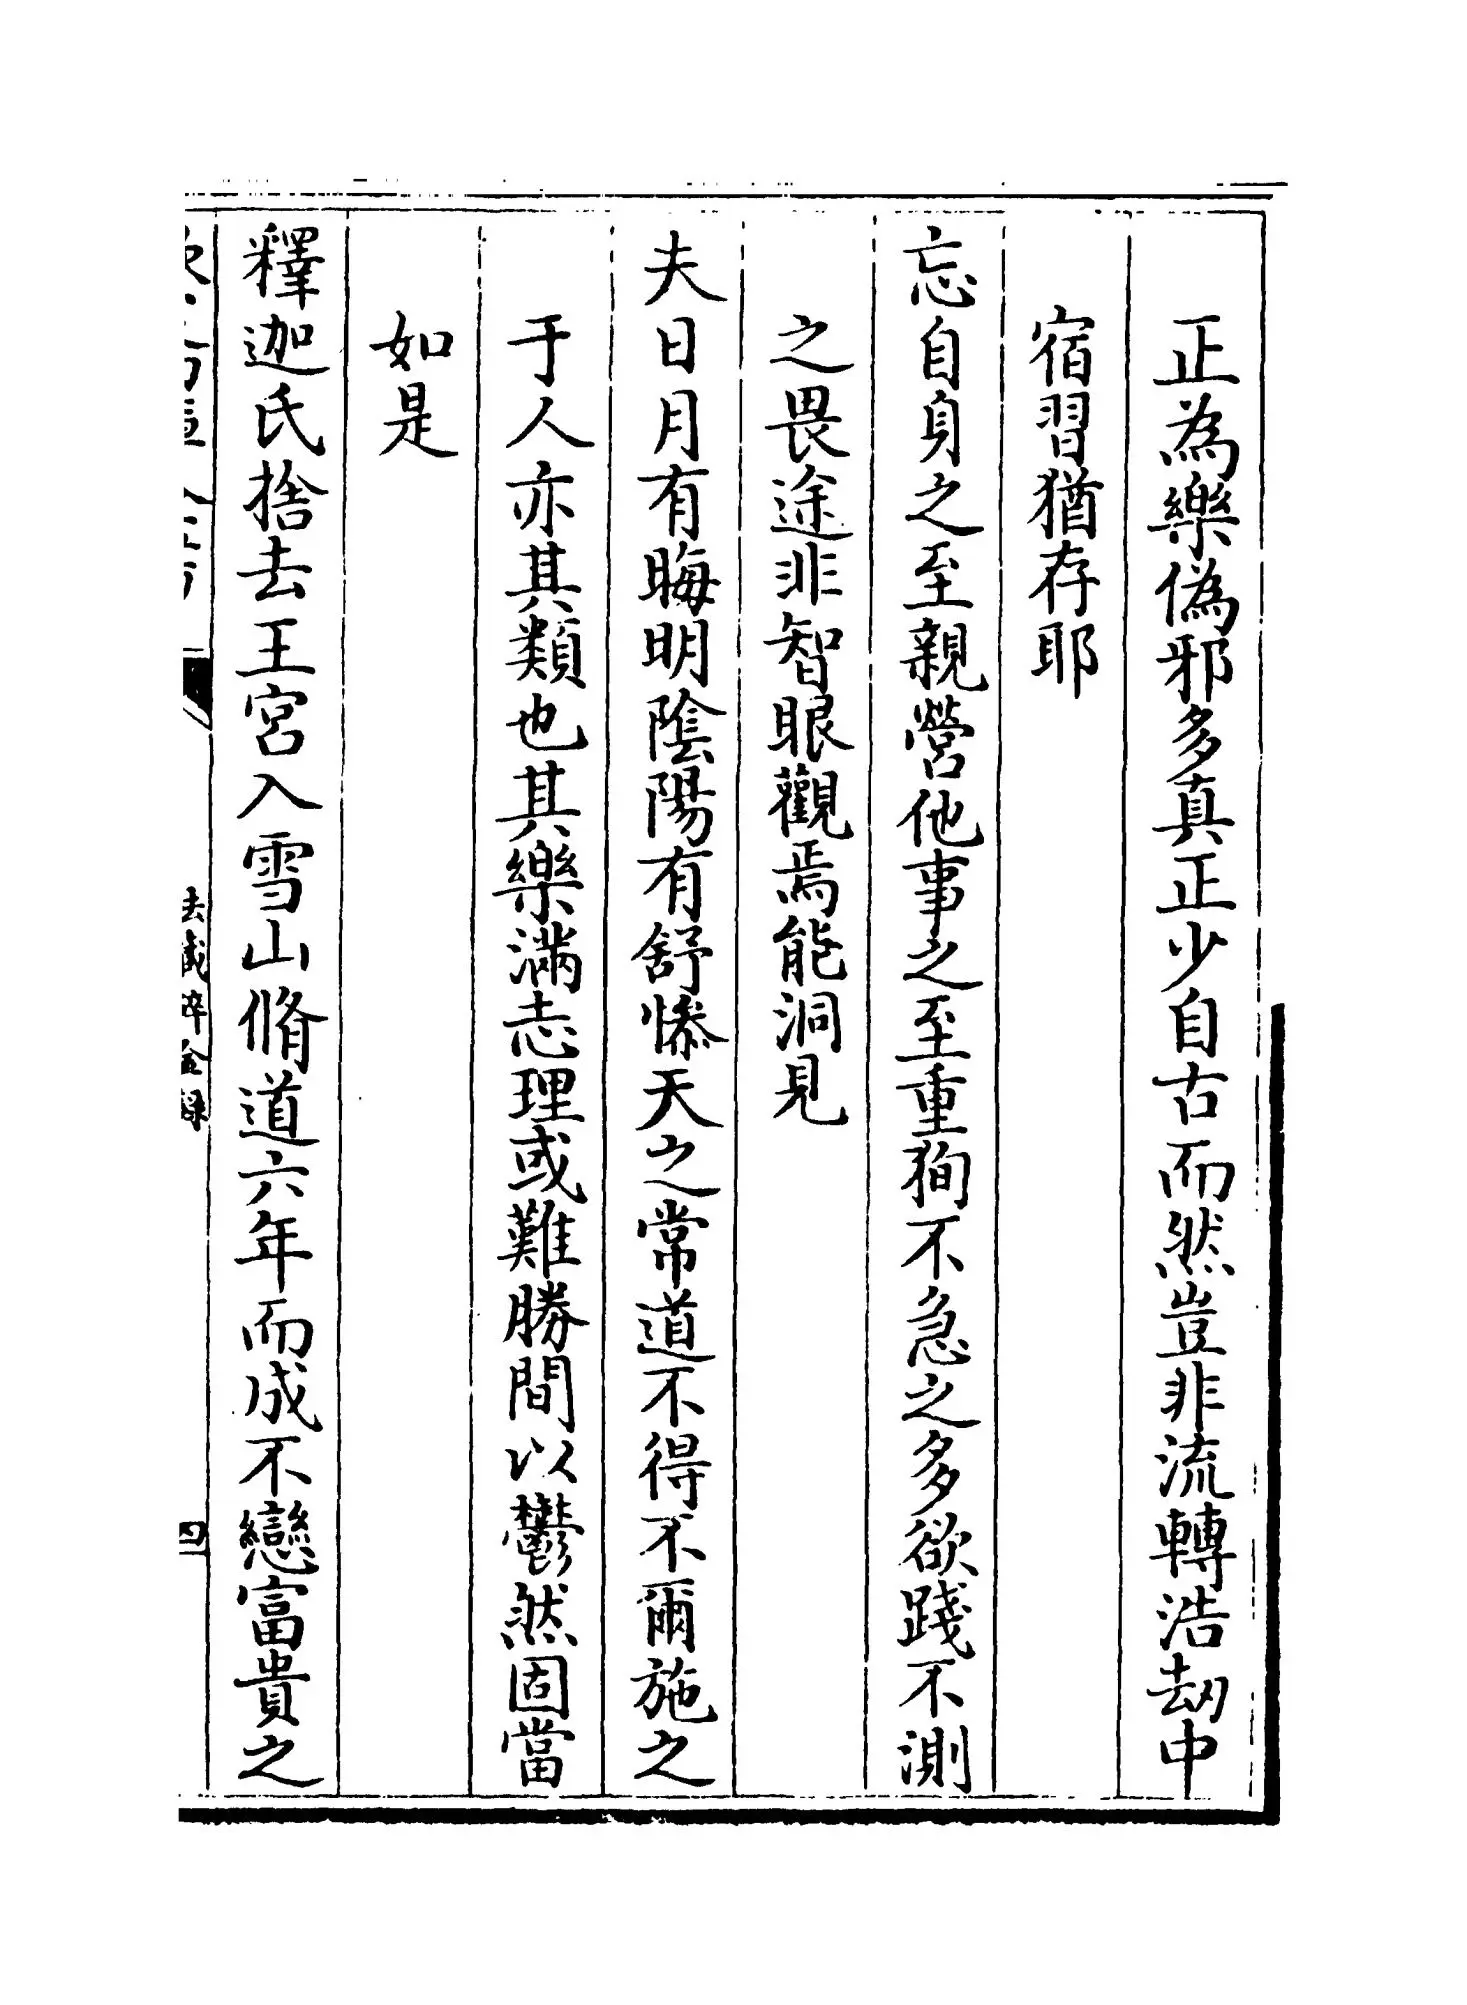 正為樂偽邪多真正少自古而然豈非流轉浩劫中
宿習猶存耶
忘自身之至親營他事之至重狥不急之多欲踐不測
之畏途非智眼觀焉能洞見
夫日月有晦明陰陽有舒慘天之常道不得不爾施之
于人亦其類也其樂滿志理或難勝間以鬱然固當
如是
釋迦氏捨去王宮入雪山脩道六年而成不戀富貴之
法藏碎金録
四